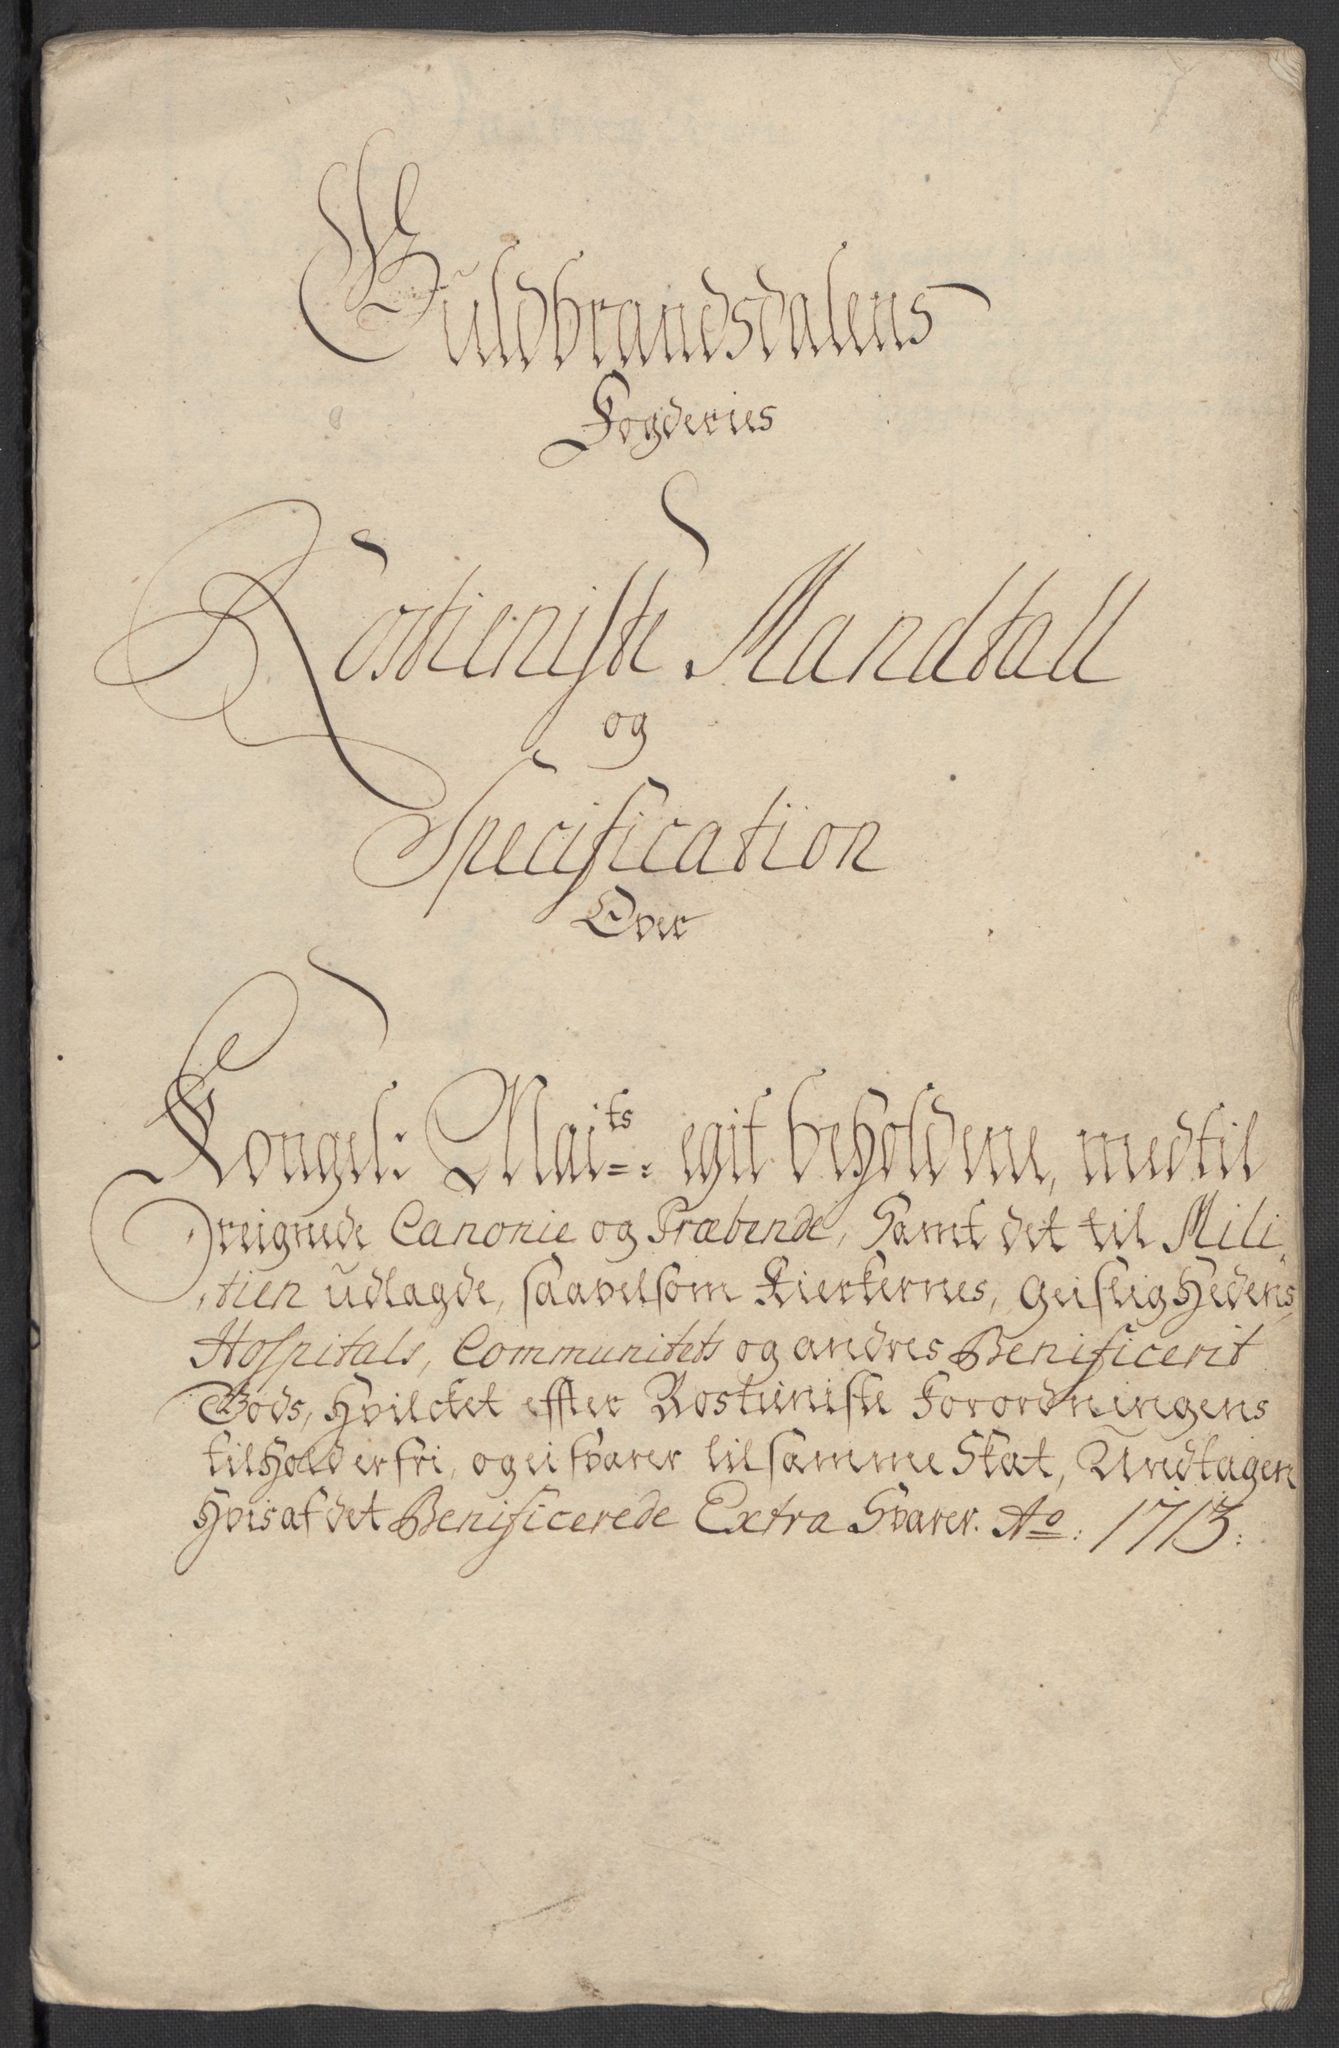 Guldbrandsdalens
Fogderies
Rostieniste Mandtall
og
Specification
Over
Kongel: Maits: egit beholdene, medtil
Dreignede Canonie og Præbende, Samt det til Mili,
,tien udlagde, saavelsom Kierkernes, Geistlighedens,
Hospitals, Communitets og andres Benificerit
Gods, Hvilcket effter Rostieniste Forordningens
tilhold er fri, og ei svarer til samme Skat, Undtagen
Hvis af det Benificerede Extra Svarer. Ao: 1713: